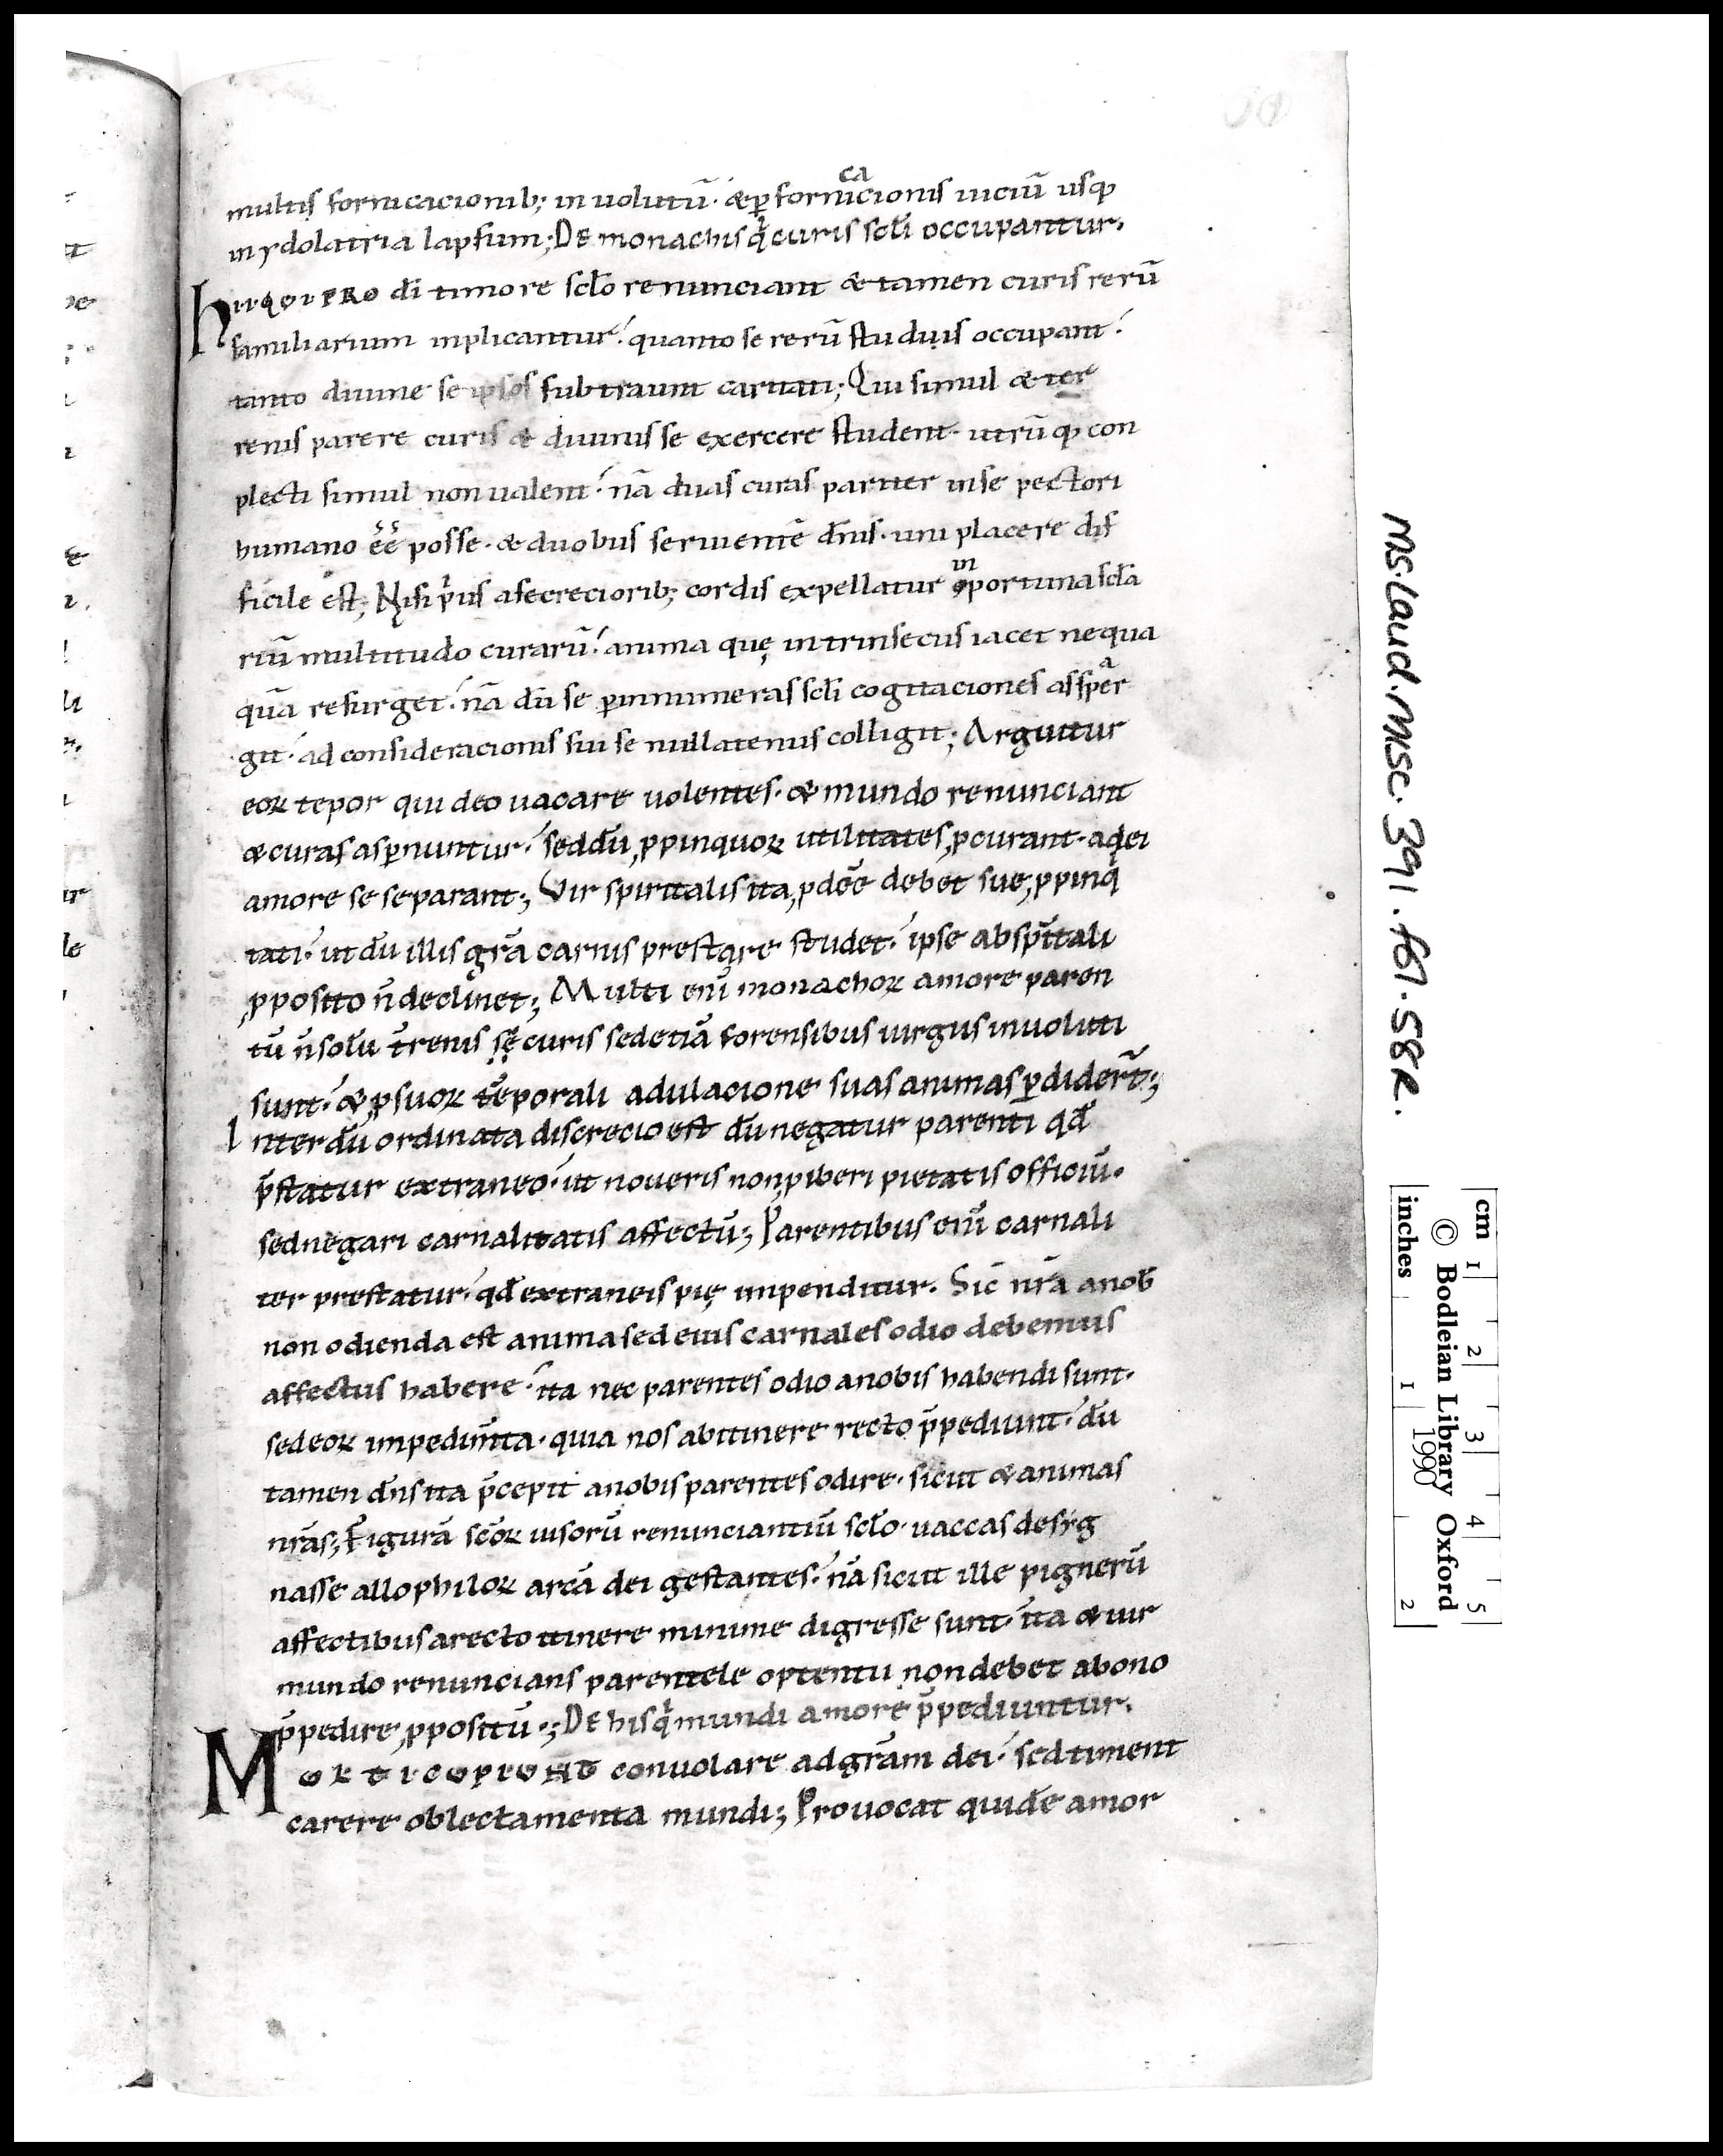 multis fornicacionib; in uolutū· &ꝑ fornicacionis uiciū usqꝫ
in ydolatria lapsum; DE monachis q̇ curis scłi occupantur.
hii QUI PRO dī timore scło renunciant & tamen curis rerū
familiarium inplicantur. quanto se rerū studiis occupant.
tanto diuine se ipsos subtraunt caritati; Qui simul & ter
renis parere curis & diuinis se exercere student· utrūqꝫ con
plecti simul non ualent. nā duas curas pariter inse pectori
humano ēē posse· & duobus seruientē dn̄is· uni placere dif
ficile est; Nisi pͥus asecreciorib; cordis expellatur inportuna scła
riū multitudo curarū. anima quę intrinsecus iacet nequa
quā resurget. nā dū se ꝑinnumeras scłi cogitaciones aspͣer
git· ad consideracionis sui se nullatenus colligit; Arguitur
eoꝝ tepor qui deo uacare uolentes· & mundo renunciant
&curas asꝑnuntur. sed dū ꝓpinquoꝝ utilitates ꝓcurant· a dei
amore se separant; Vir spiritalis ita ꝓdeē debet sue ꝓpinq̇
tati· ut dū illis grā carnis prestare studet. ipse abspīitali
ꝓposito n̄ declinet; Multi eni᷑ monachoꝝ amore paren
tū n̄ solū t̄renis sę curis sed etiā forensibus iurgiis inuoluti
sunt. & ꝓsuoꝝ tēporali adulacione suas animas ꝑdider̄t;
Interdū ordinata discrecio est dū negatur parenti qd̄
p̄statur extraneo· ut noueris non ꝓiberi pietatis officiū.
sed negari carnalitatis affectū; Parentibus enī carnali
ter prestatur· qd̄ extraneis pię impenditur. Sic nr̄a anob̄
non odienda est anima sed eius carnales odio debemus
affectus habere· ita nec parentes odio anobis habendi sunt.
sed eoꝝ impedim̄ta· quia nos abitinere recto p̄pediunt. dū
tamen dn̄s ita p̄cepit anobis parentes odire· sicut & animas
nr̄as; Figurā scōꝝ uisorū renunciantiū scło· uaccas desyg
nasse allophiloꝝ arcā dei gestantes. nā sicut ille pignerū
affectibus arecto itinere minime digresse sunt· ita & uir
mundo renuncians parentele optentu non debet abono
p̄pedire ꝓpositū·; DE his q̇ mundi amore p̄pediuntur.
MULTI CUPIUNT conuolare adgrām dei· sed timent
carere oblectamenta mundi; Prouocat quidē amor
MS. Laud. Misc. 391. fol. 58R.
cm 1 2 3 4 5
© Bodleian Library Oxford
1990
inches 1 2